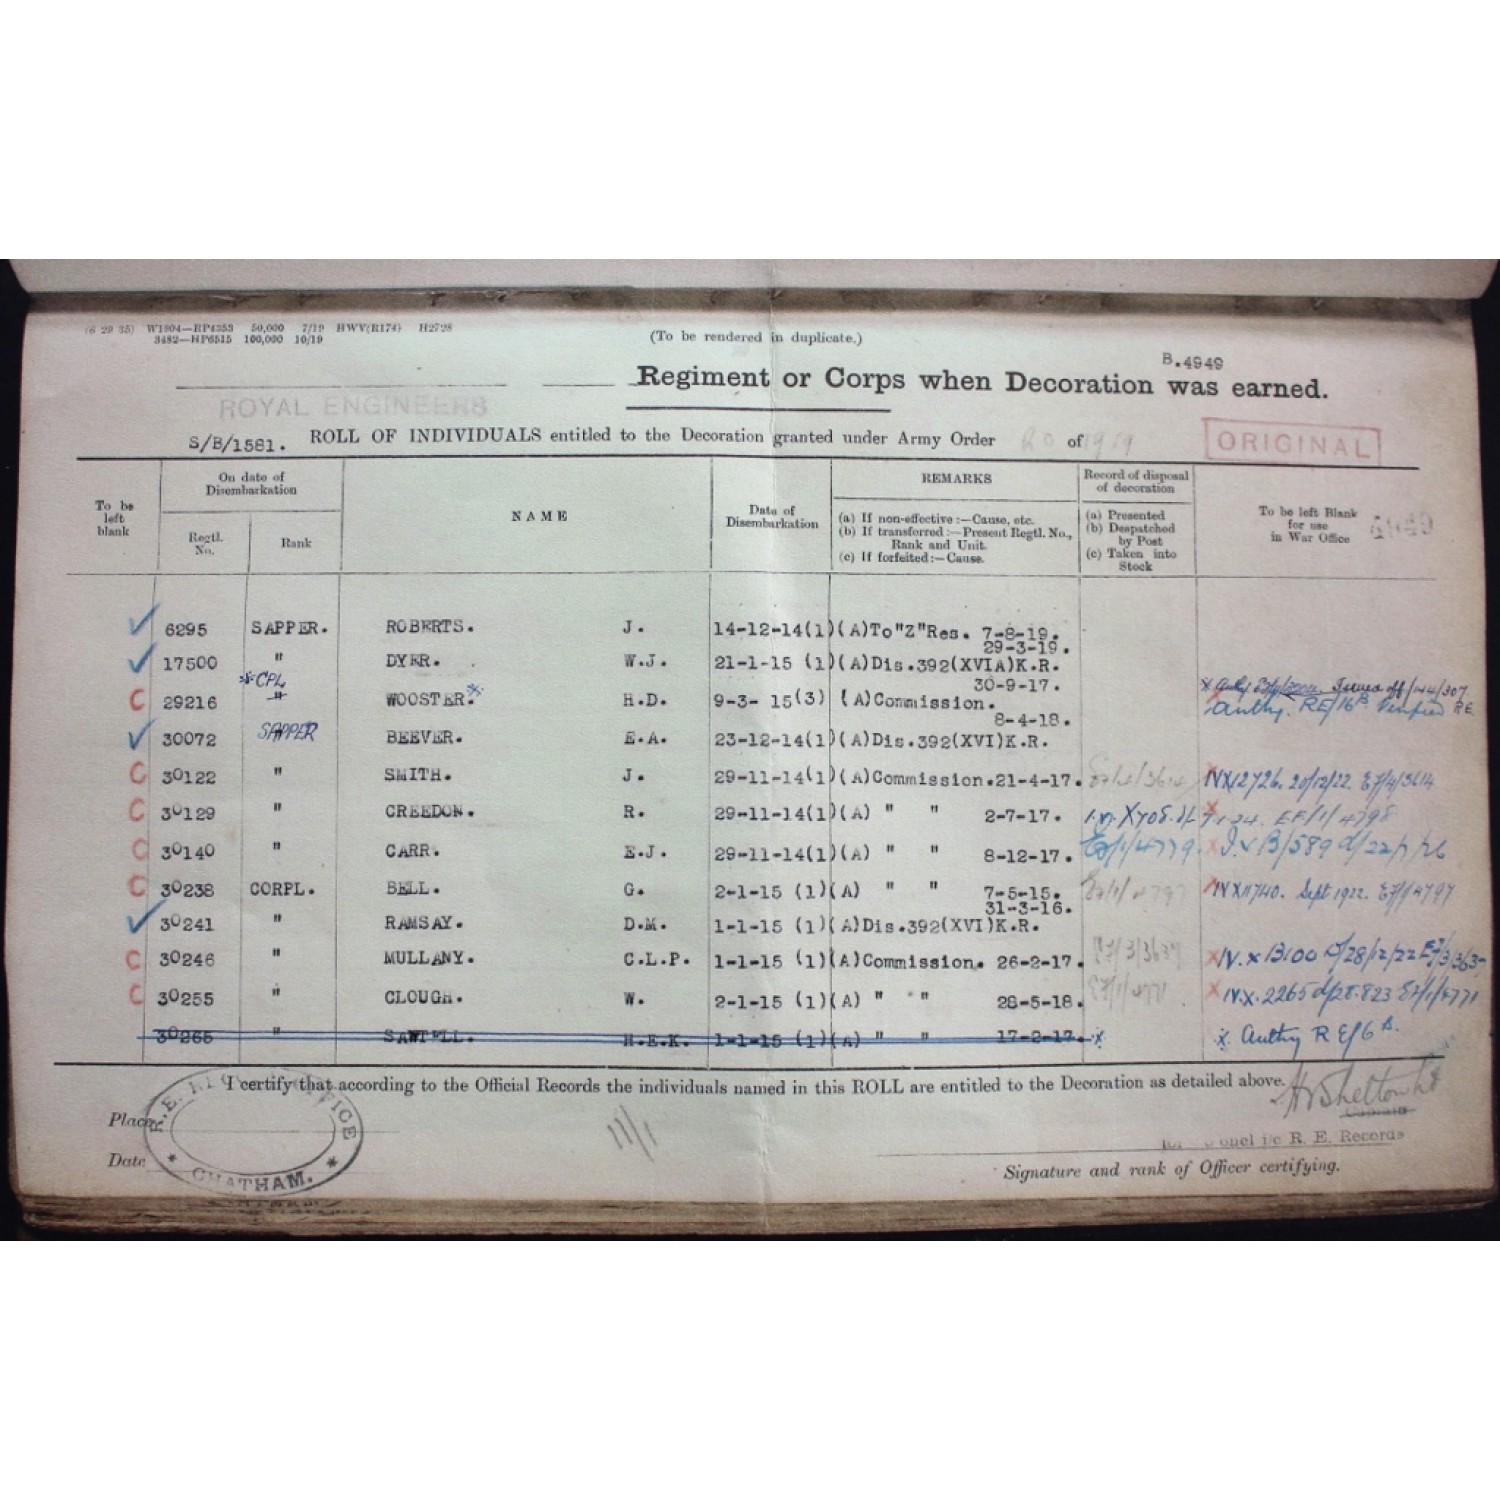 (6 29 35) W1804—RP4353 50,000 7/19 HWV(R174) H2728
3482—HP6515 100,000 10/19
(To be rendered in duplicate.)
B.4949
Regiment or Corps when Decoration was earned.
ROYAL ENGINEERS
S/B/1581. ROLL OF INDIVIDUALS entitled to the Decoration granted under Army Order of 1919
ORIGINAL
To be left blank
On date of Disembarkation
Regtl. No.
Rank
NAME
Date of Disembarkation
REMARKS
(a) If non-effective:—Cause, etc.
(b) If transferred:—Present Regtl. No., Rank and Unit.
(c) If forfeited:—Cause.
Record of disposal of decoration
(a) Presented
(b) Despatched by Post
(c) Taken into Stock
To be left Blank for use in War Office
6295 SAPPER. ROBERTS. J. 14-12-14(1) (A)To"Z"Res. 7-8-19.
29-3-19.
17500 " DYER. W.J. 21-1-15 (1) (A)Dis.392(XVIA)K.R.
*CPL 30-9-17.
C 29216 " WOOSTER.* H.D. 9-3- 15(3) (A)Commission.
Authy. RE/16B Verified RE
8-4-18.
30072 SAPPER BEEVER. E.A. 23-12-14(1) (A)Dis.392(XVI)K.R.
C 30122 " SMITH. J. 29-11-14(1) (A)Commission.21-4-17. IVX/2726. 20/12/22. E7/4/3614
C 30129 " CREEDON. R. 29-11-14(1) (A) " " 2-7-17. EF/1/4798
C 30140 " CARR. E.J. 29-11-14(1) (A) " " 8-12-17. E7/1/4779
C 30238 CORPL. BELL. G. 2-1-15 (1) (A) " " 7-5-15. E7/1/4797 IVX11740. Sept 1922. E7/1/4797
31-3-16.
30241 " RAMSAY. D.M. 1-1-15 (1) (A)Dis.392(XVI)K.R.
C 30246 " MULLANY. C.L.P. 1-1-15 (1) (A)Commission. 26-2-17. E7/3/3637
C 30255 " CLOUGH. W. 2-1-15 (1) (A) " " 28-5-18. E7/1/4771 IV.X.2265 E7/1/4771
30265 " SAWTELL. H.E.K. 1-1-15 (1) (A) " " 17-2-17. x x Authy R E/6 B.
I certify that according to the Official Records the individuals named in this ROLL are entitled to the Decoration as detailed above.
Place
Date
R.E. OFFICE
* CHATHAM. *
11/1
H Shelton Lt
Captain
Colonel i/c R. E. Records
Signature and rank of Officer certifying.